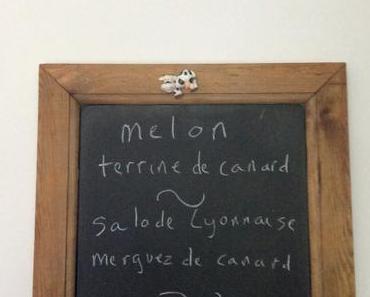 melon
terrine de canard
salade Lyonnaise
merguez de canard